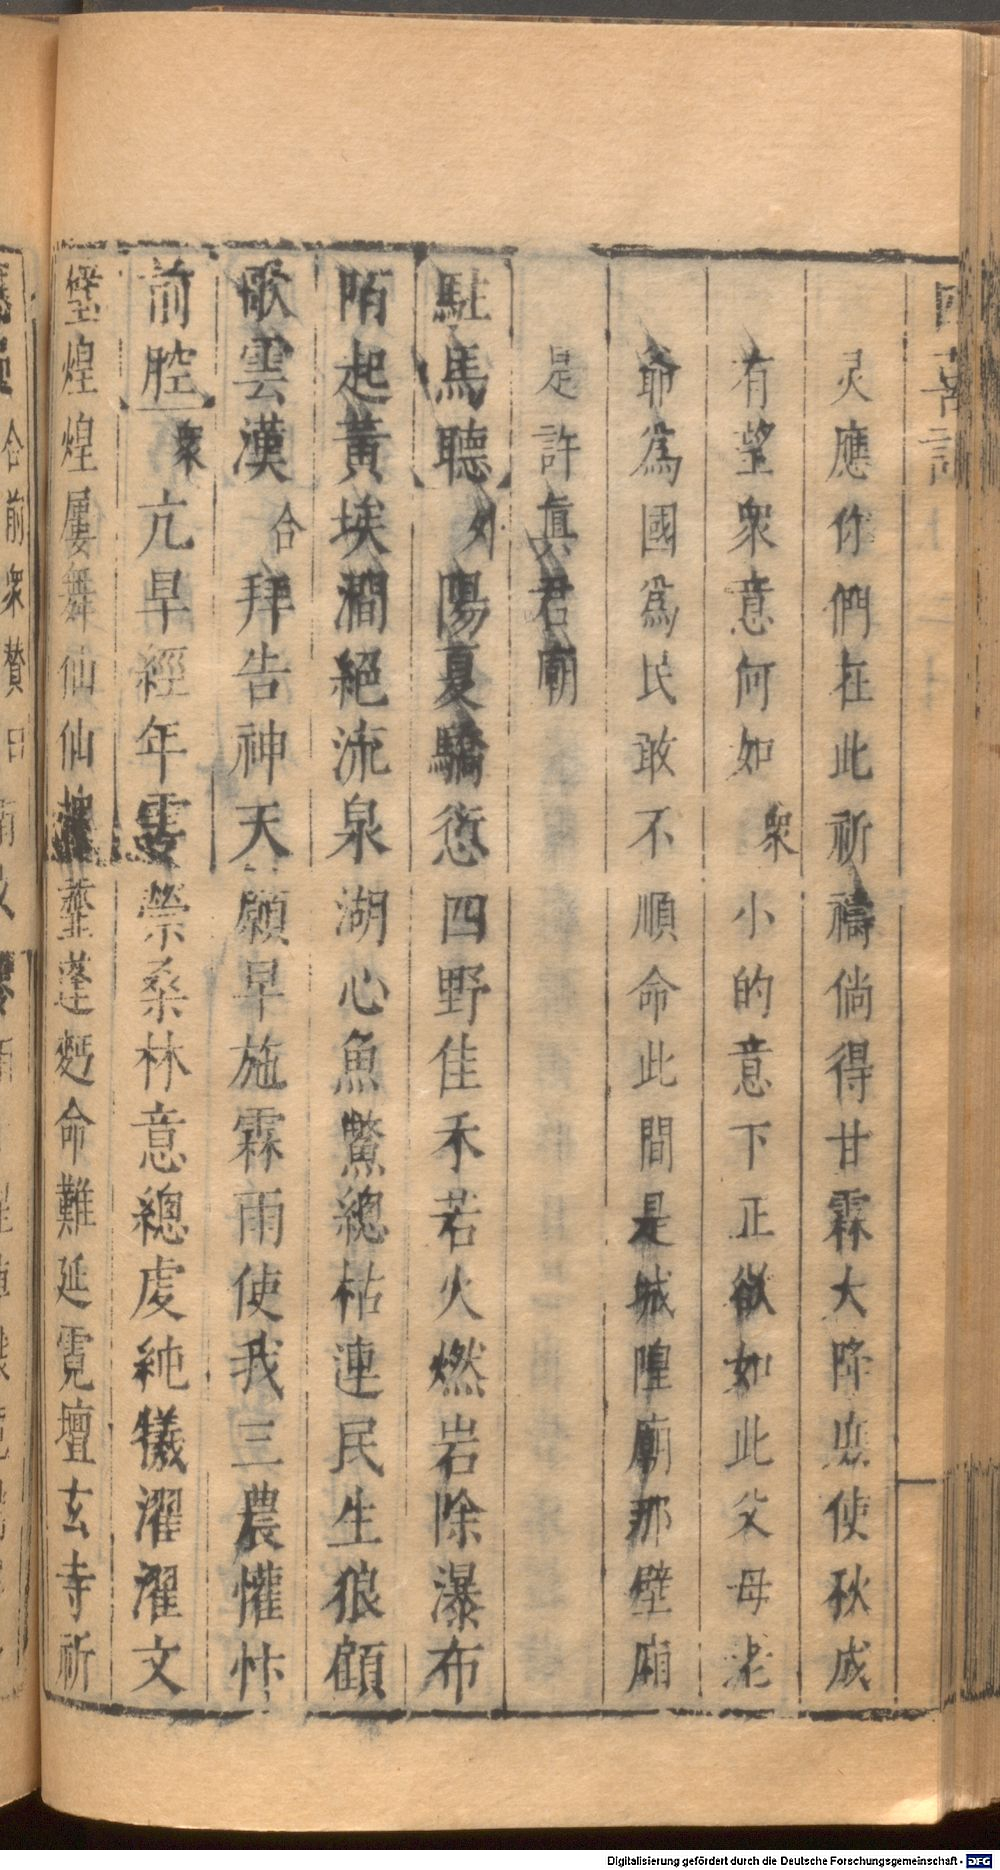 灵應你們在此祈禱倘得甘霖大降庶使秋成
有望衆意何如 衆 小的意下正欲如此父母老
爺爲國爲民敢不順命此間是城隍廟那壁廂
是許真君廟
駐馬聽 外 陽夏驕愆四野佳禾若火燃岩除瀑布
陌起黃埃澗絕流泉湖心魚鱉總枯連民生狼顧
歌雲漢 合 拜告神天願早施霖雨使我三農懽忭
前腔 衆 亢旱經年雩禜桑林意總虔純犧濯濯文
璧煌煌屢舞仙仙 命難延霓壇玄寺祈
合前衆贊曰
Digitalisierung gefördert durch die Deutsche Forschungsgemeinschaft - DFG